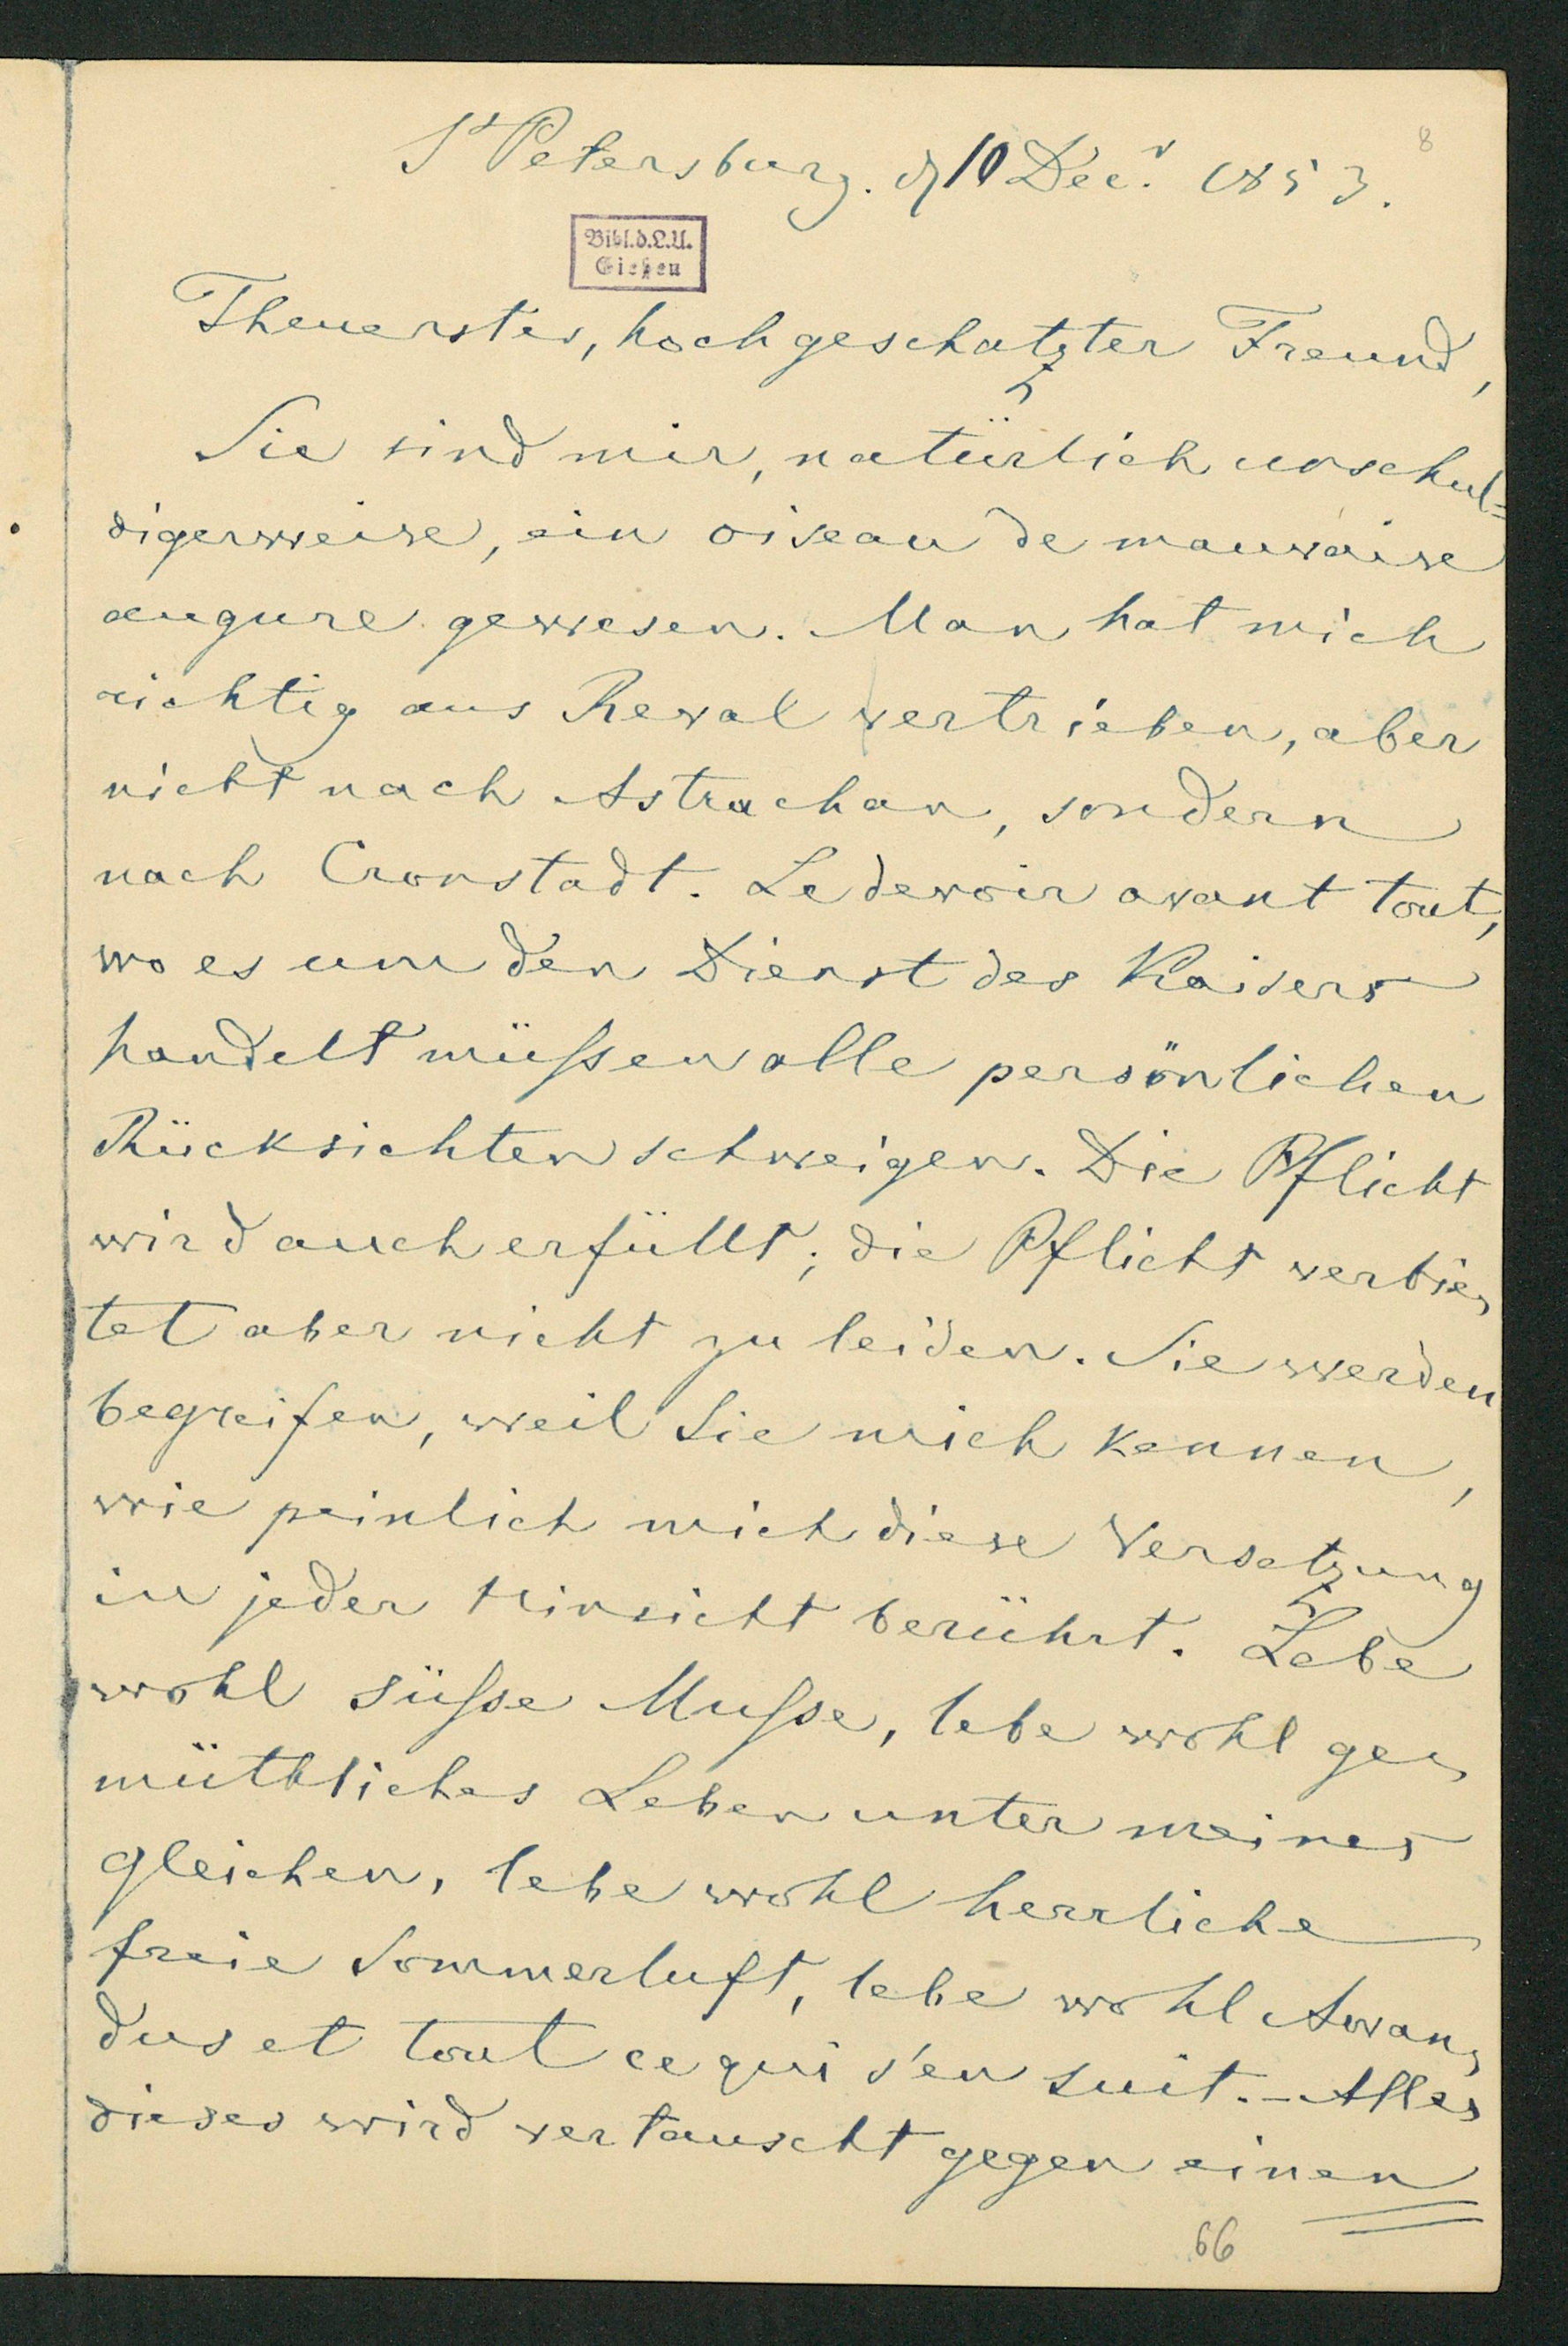 8
St Petersburg. d 10 Decr. 1853.
Bibl.d.L.U.
Gießen
Theuerster, hochgeschatzter Freund,
Sie sind mir, natürlich unschul=
digerweise, ein oiseau de mauvaise
augure gewesen. Man hat mich
richtig aus Reval vertrieben, aber
nicht nach Astrachan, sondern
nach Cronstadt. Le devoir avant tout,
wo es um den Dienst des Kaisers
handelt müssen alle persönlichen
Rücksichten schweigen. Die Pflicht
wird auch erfüllt; die Pflicht verbie-
tet aber nicht zu leiden. Sie werden
begreifen, weil Sie mich kennen,
wie peinlich mich diese Versetzung
in jeder Hinsicht berührt. Lebe
wohl süsse Musse, lebe wohl ge-
müthliches Leben unter meines
gleichen, lebe wohl herrliche
freie Sommerluft, lebe wohl Awan-
dus et tout ce qui s'en suit. - Alles
dieses wird vertauscht gegen einen
66